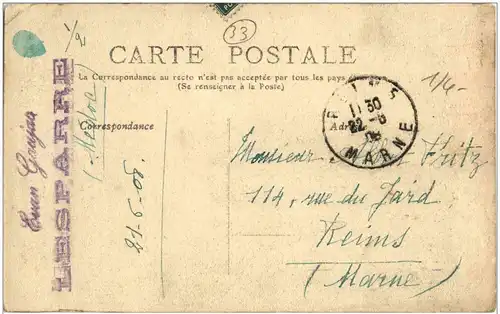 33
1/2
CARTE POSTALE
La Correspondance au recto n'est pas acceptée par tous les pays
(Se renseigner à la Poste)
Correspondance
Adr
REIMS
11 30
22 - 6
08
MARNE
1/4-
LESPARRE
(Médoc)
Monsieur Fritz
114, rue du Jard
Reims
(Marne)